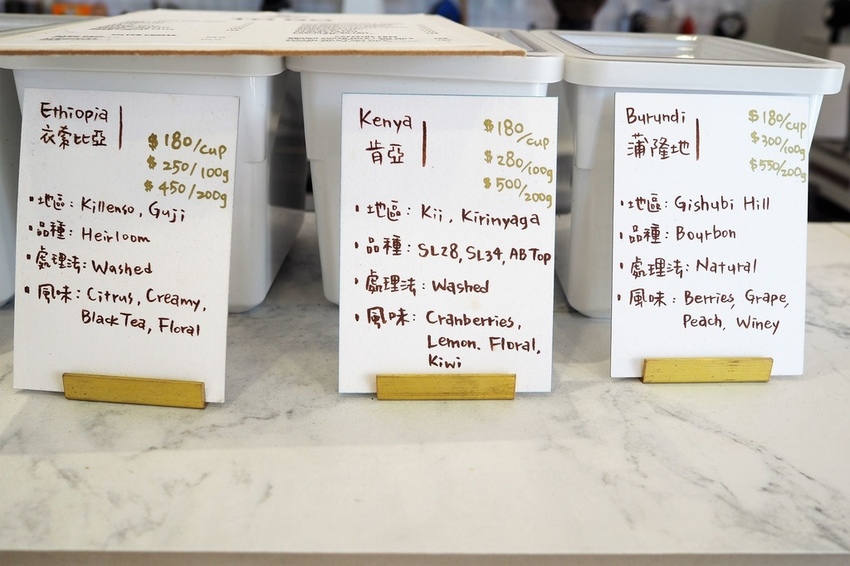 Ethiopia
衣索比亞
$180/cup
$250/100g
$450/200g
・地區: Killenso, Guji
・品種: Heirloom
・處理法: Washed
・風味: Citrus, Creamy,
Black Tea, Floral
Kenya
肯亞
$180/cup
$280/100g
$500/200g
・地區: Kii, Kirinyaga
・品種: SL28, SL34, AB Top
・處理法: Washed
・風味: Cranberries,
Lemon. Floral,
Kiwi
Burundi
蒲隆地
$180/cup
$300/100g
$550/200g
・地區: Gishubi Hill
・品種: Bourbon
・處理法: Natural
・風味: Berries, Grape,
Peach, Winey